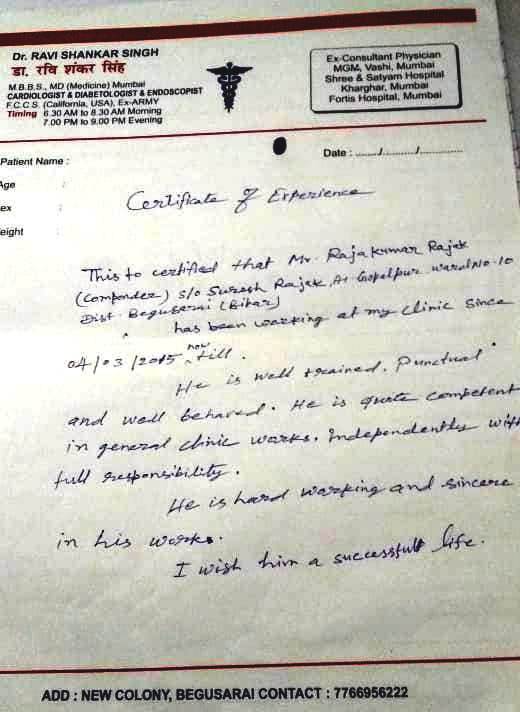 Dr. RAVI SHANKAR SINGH
डा. रवि शंकर सिंह
M.B.B.S., MD (Medicine) Mumbai
CARDIOLOGIST & DIABETOLOGIST & ENDOSCOPIST
F.C.C.S. (California, USA), Ex-ARMY
Timing 6.30 AM to 8.30 AM Morning
7.00 PM to 9.00 PM Evening
Ex-Consultant Physician
MGM, Vashi, Mumbai
Shree & Satyam Hospital
Kharghar, Mumbai
Fortis Hospital, Mumbai
Patient Name :
Date : ......./........../..............
Age :
ex :
eight :
Certificate of Experience
This to certified that Mr. Rajakumar Rajak
(Componder) S/o Suresh Rajak, At Gopalpur ward No-10
Dist. Begusarai (Bihar)
has been working at my clinic since
04/03/2015 now till.
He is well trained. Punctual
and well behaved. He is quite competent
in general clinic works. Independently with
full responsibility.
He is hard working and sincere
in his works.
I wish him a successfull life.
ADD : NEW COLONY, BEGUSARAI CONTACT : 7766956222